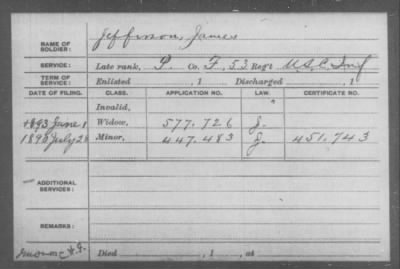 Jefferson, James
NAME OF SOLDIER:
SERVICE: Late rank, P. Co. F, 53 Reg't U.S.C. Inf
TERM OF SERVICE: Enlisted , 1 Discharged , 1
DATE OF FILING. CLASS. APPLICATION NO. LAW. CERTIFICATE NO.
Invalid,
1893 June 1 Widow, 577.726 J.
1890 July 28 Minor, 447.483 J. 451.743
ADDITIONAL SERVICES:
REMARKS:
Died , 1 , at